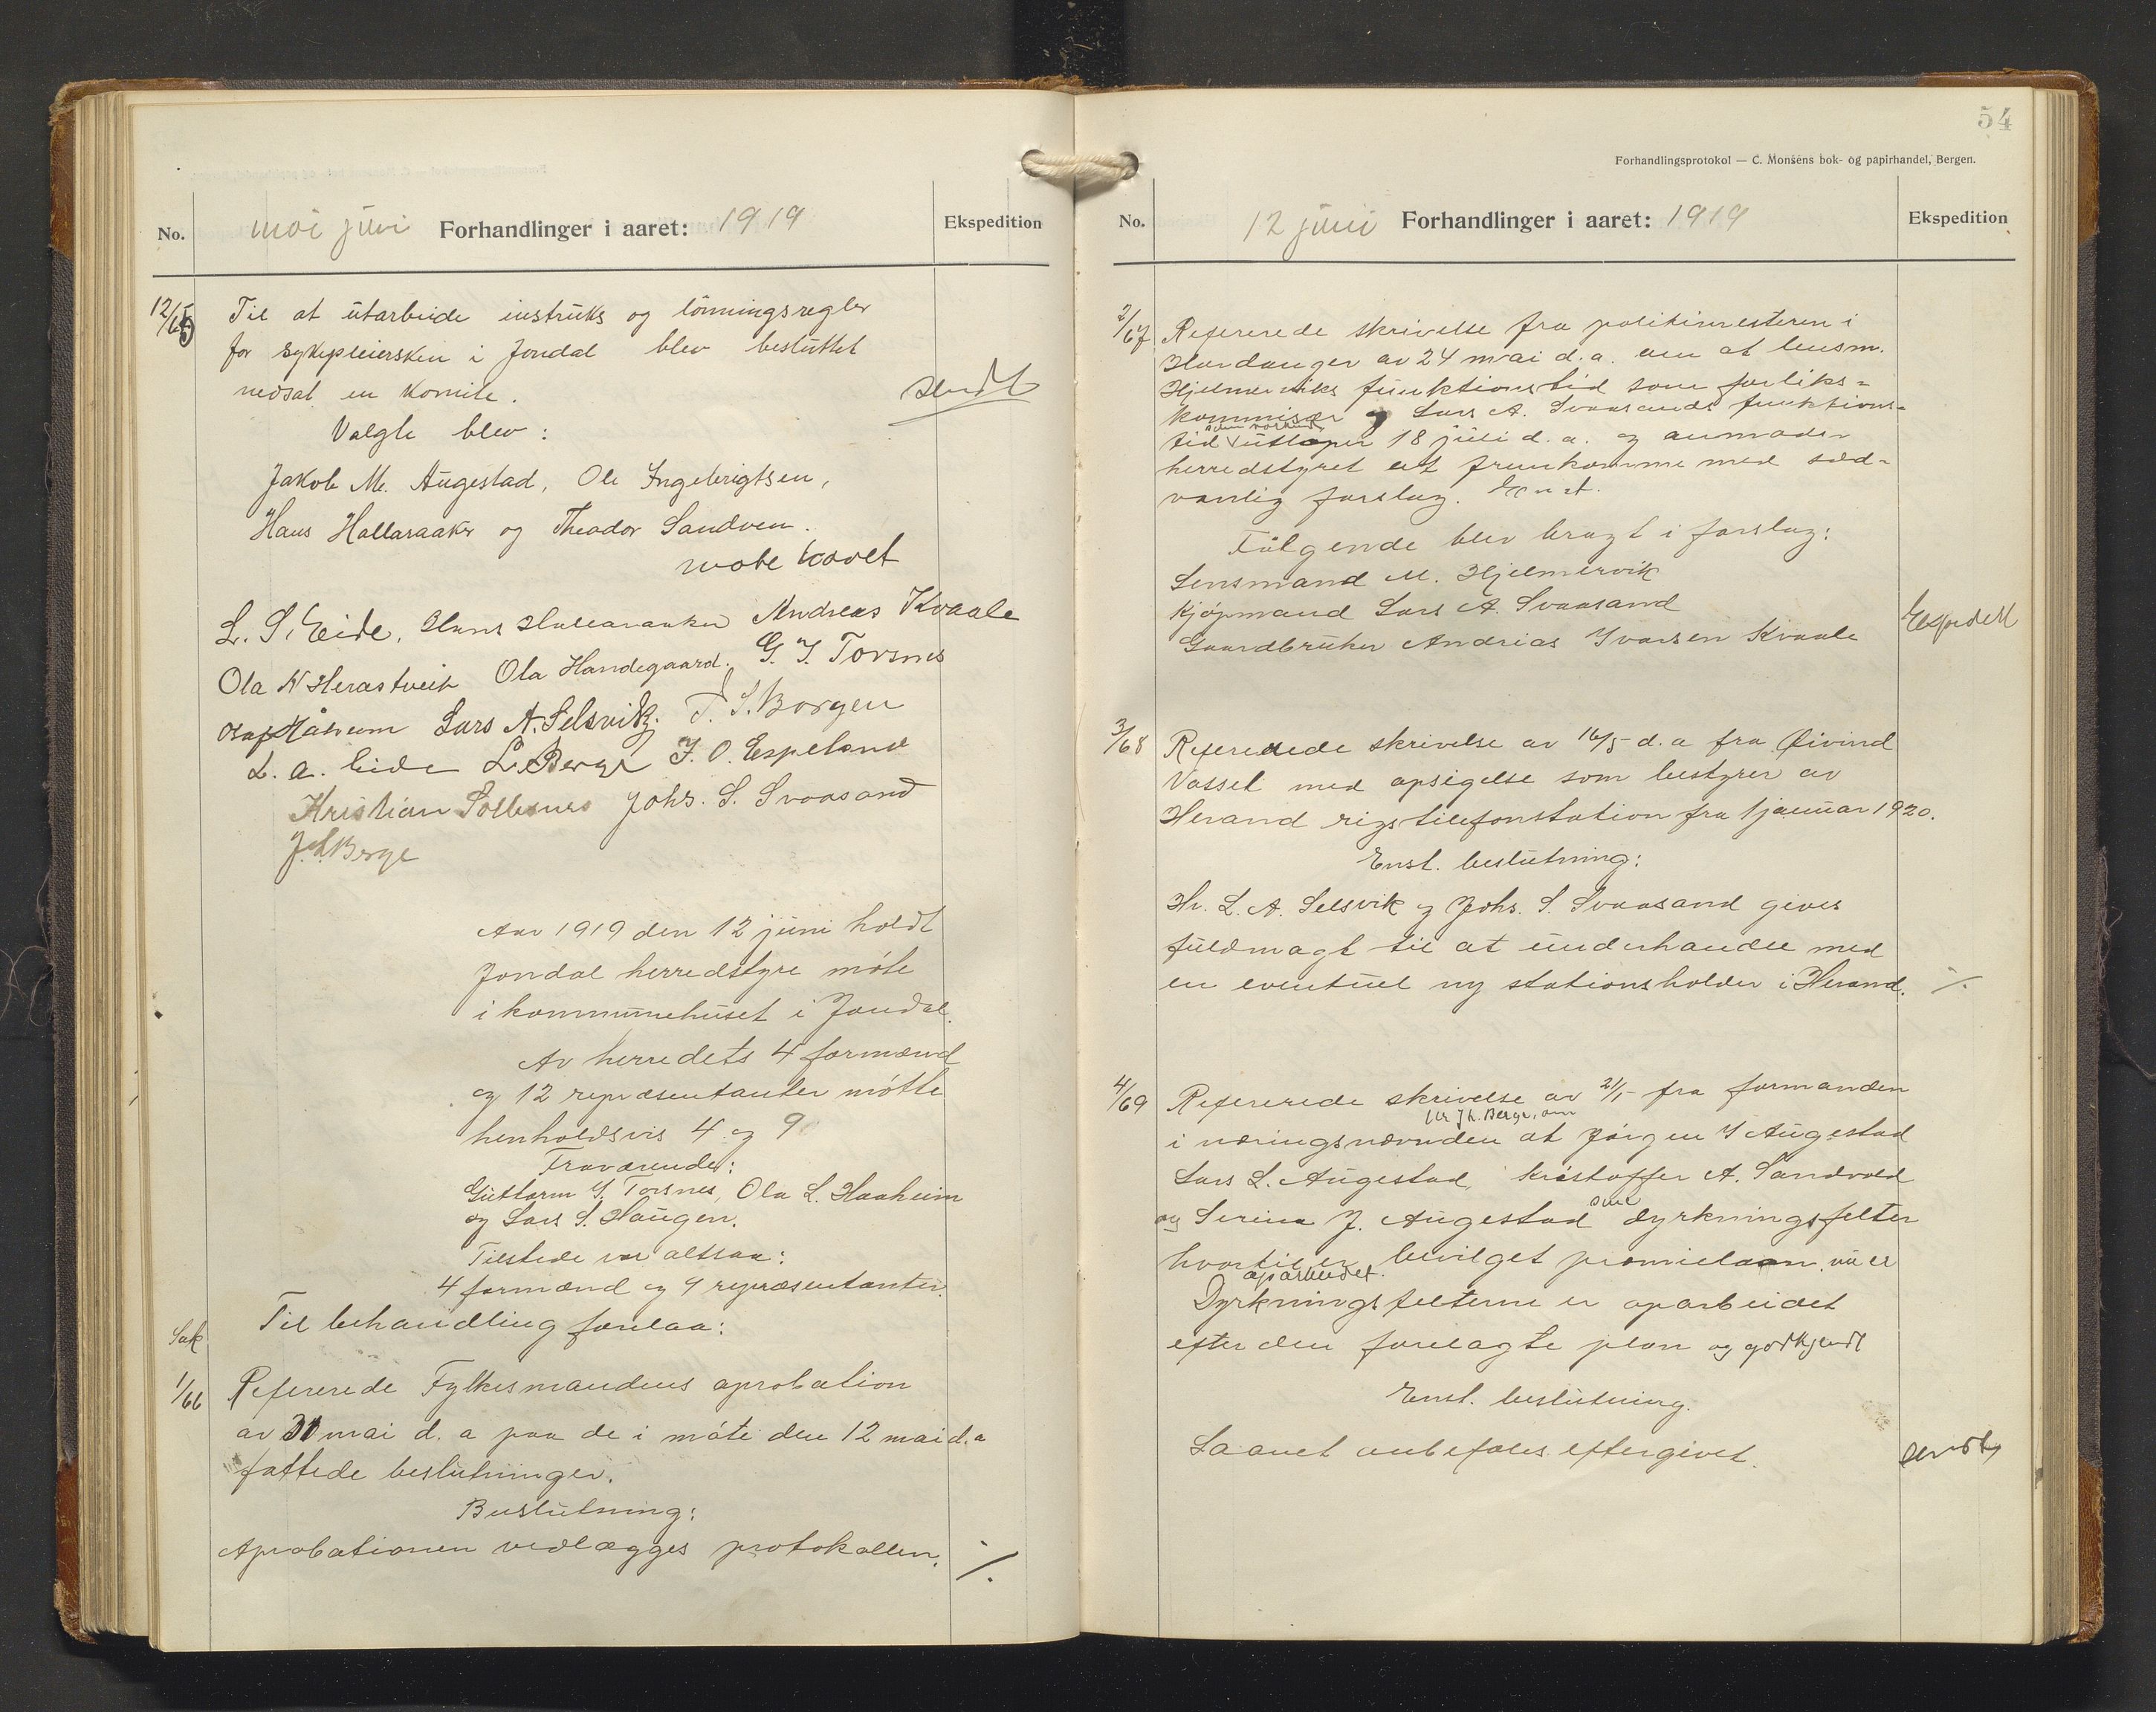 No.
mai juni Forhandlinger i aaret: 1919
Ekspedition
12/65
Til at utarbeide instruks og lönningsregler
for sykepleiersken i Jondal blev besluttet
nedsat en komite.
Sendt
Valgte blev:
Jakob M. Augestad, Ole Ingebrigtsen,
Hans Hallaraaker og Theodor Sandven.
møte hævet
L. S. Eide, Hans Hallaraaker Andreas Kvaale
Ola N Herastveit Ola Handegaard. G. J. Torsnes
Lars A. Selsvik. T. S. Borgen
L. a. Eide L. Berge J. O. Espeland
Kristian Solbsnes Johs. S. Svaasand
J. L. Berge
Aar 1919 den 12 juni holdt
Jondal herredstyre möte
i kommunehuset i Jondal.
Av herredets 4 formænd
og 12 repræsentanter mötte
henholdsvis 4 og 9
Fraværende:
Guttorm J. Torsnes, Ola L. Haaheim
og Lars S. Haugen.
Tilstede var altsaa:
4 formænd og 9 repræsentanter.
Til behandling forelaa:
Sak
1/66
Refererede Fylkesmandens aprobation
av 31 mai d. a paa de i möte den 12 mai d. a
fattede beslutninger.
Beslutning:
Aprobationen vedlægges protokollen.
./.
54
Forhandlingsprotokol — C. Monsens bok- og papirhandel, Bergen.
No.
12 juni Forhandlinger i aaret: 1919
Ekspedition
2/67
Refererede skrivelse fra politimesteren i
Hardanger av 24 mai d. a. om at lensm.
Hjelmerviks funktionstid som forliks-
kommisær og Lars A. Svaasands funktions-
tid som varamd utløper 18 juli d. a. og anmoder
herredstyret at fremkomme med sæd-
vanlig forslag. Enst.
Fölgende blev bragt i forslag:
Lensmand M. Hjelmervik
Kjøpmand Lars A. Svaasand
Gaardbruker Andreas Ivarsen Kvaale
Ekspedert
3/68
Refererede skrivelse av 16/5 d. a fra Øivind
Vassel med opsigelse som bestyrer av
Herand rigstelefonstation fra 1 januar 1920.
Enst. beslutning:
Hr. L. A. Selsvik og Johs. S. Svaasand gives
fuldmagt til at underhandle med
en eventuel ny stationsholder i Herand.
./.
4/69
Refererede skrivelse av 21/5 fra formanden
i næringsnævnden hr J. L. Berge, om at Jörgen J Augestad
Lars L. Augestad, Kristoffer A. Sandvold
og Serina J. Augestad sine dyrkningsfelter
hvortil er bevilget præmielaan, nu er
oparbeidet.
Dyrkningsfelterne er oparbeidet
efter den forelagte plan og godkjendt
Enst. beslutning.
Laanet anbefales eftergivet.
Sendt